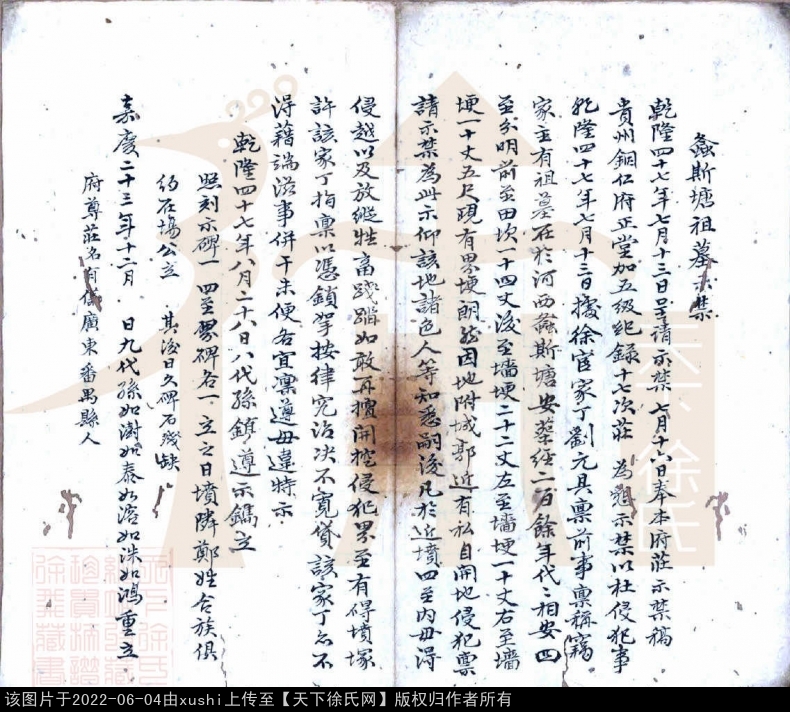 螽斯塘祖墓示禁
乾隆四十七年七月十三日呈請示禁 七月十六日奉本府莊示禁稿
貴州銅仁府正堂加五級紀錄十七次莊 為懇示禁以杜侵犯事
乾隆四十七年七月十三日據徐宦家丁劉元具稟前事稟稱竊
家主有祖墓在於河西螽斯塘安葬經二百餘年代〻相安四
至分明前至田坎一十四丈後至墻埂二十二丈左至墻埂一十丈右至墻
埂一十丈五尺現有界埂朗然因地附城郭近有私自開地侵犯稟
請示禁為此示仰該地諸色人等知悉嗣後凡於近墳四至內毋得
侵越以及放縱牲畜踐蹋如敢再擅開挖侵犯界至有碍墳塚
許該家丁指稟以憑鎖拏按律究治决不寬貸該家丁亦不
淂藉端滋事併干未便各宜凛遵毋違特示
乾隆四十七年八月二十八日八代孫 遵示鐫立
照刻示碑一 四至界碑各一 立之日墳隣鄭姓合族俱
約在場公立 其後日久碑石殘缺
嘉慶二十三年十二月 日九代孫如澍如泰如溶如洙如鴻重立
府尊莊名有儀廣東番禺縣人
天下徐氏
天下徐氏
珍貴
徐
藏書
该图片于2022-06-04由xushi上传至【天下徐氏网】版权归作者所有